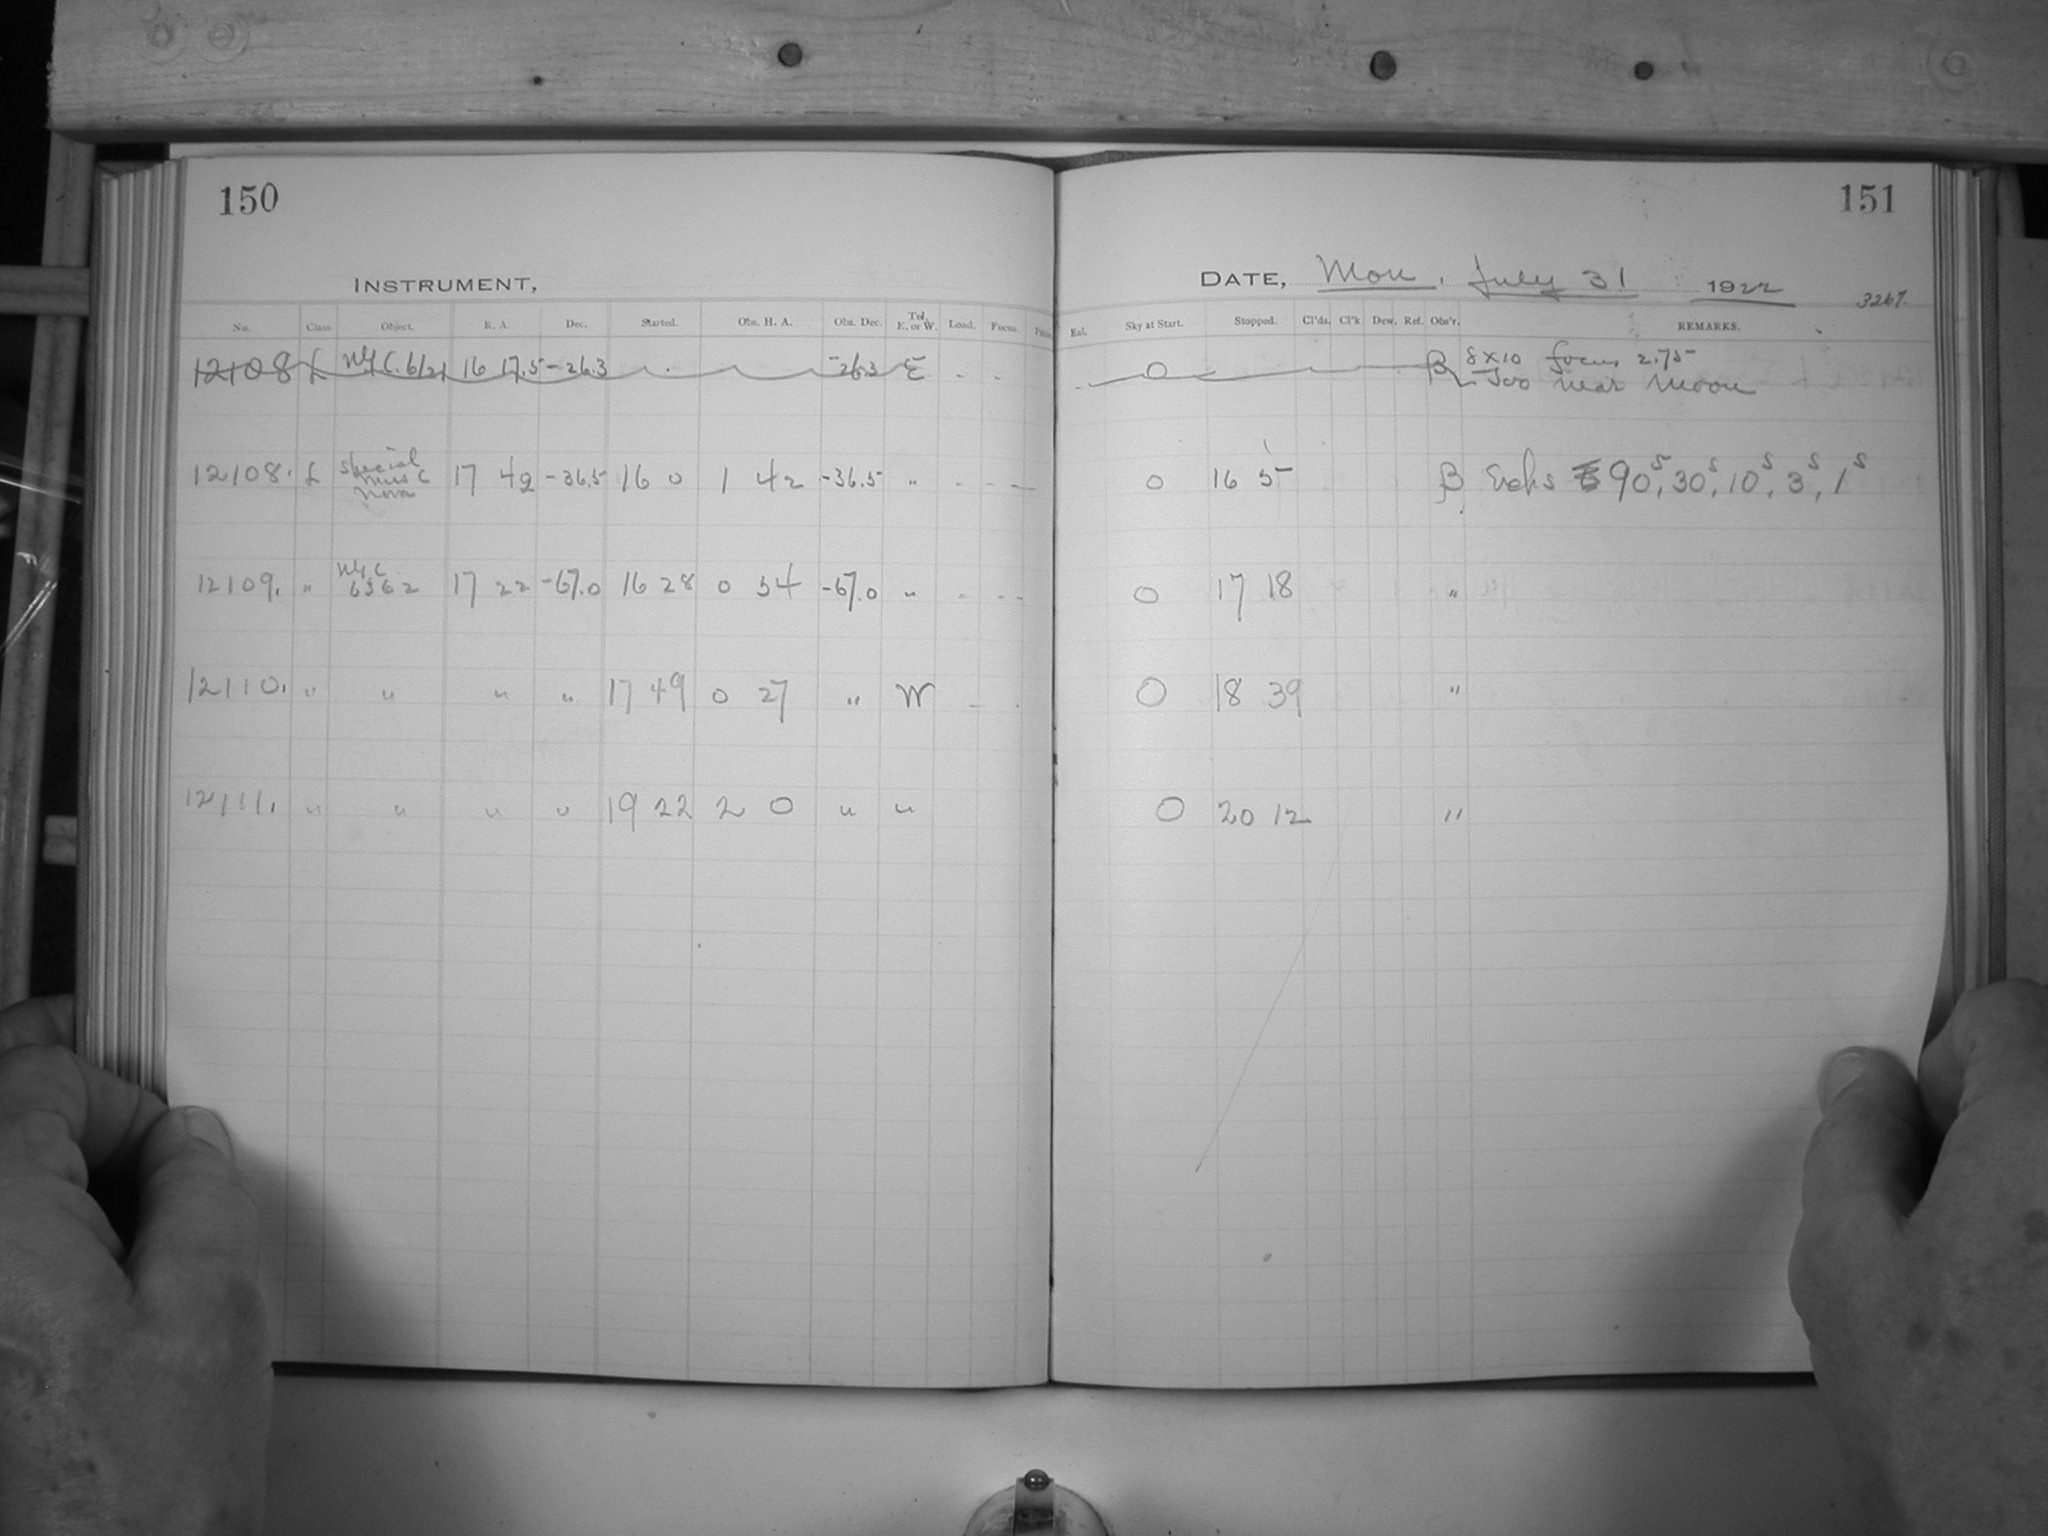 150
INSTRUMENT,
No. Class. Object. R. A. Dec. Started. Obs. H. A. Obs. Dec. Tel. E. or W. Load. Focus.
12108 £ N.G.C. 6121 16 17.5 -26.3 -26.3 E
12108. £ Special 17 42 -36.5 16 0 1 42 -36.5 "
Nova
12109. " N.G.C. 6362 17 22 -67.0 16 28 0 54 -67.0 "
12110. " " " " 17 49 0 27 " W
12111. " " " " 19 22 2 0 " "
151
DATE, Mon. July 31 1922
3267.
Sky at Start. Stopped. Cl'ds. Cl'k Dew. Ref. Obs'r. REMARKS.
O β 8x10 focus 2.75
Too near Moon
O 16 5 β Exps 90s, 30s, 10s, 3s, 1s
O 17 18 "
O 18 39 "
O 20 12 "